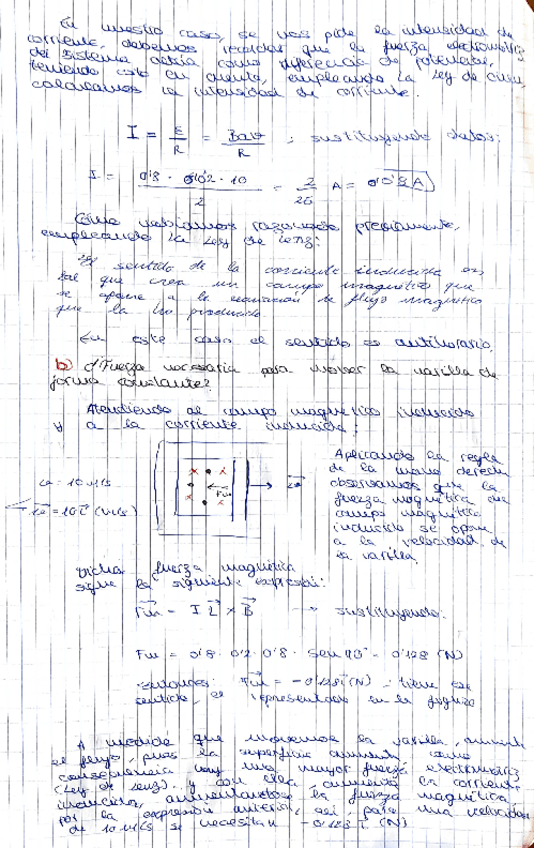 En nuestro caso, se nos pide la intensidad de
corriente, debemos recordar que la fuerza electromotriz
del sistema actúa como diferencia de potencial,
teniendo esto en cuenta, empleando la Ley de Ohm,
calculamos la intensidad de corriente.
I = ε/R = Blv/R ; sustituyendo datos:
I = 0'8 · 0'02 · 10 / 2 = 2/25 A = 0'8 A
Como habíamos razonado previamente,
empleando la Ley de Lenz:
"El sentido de la corriente inducida es
tal que crea un campo magnético que
se opone a la variación de flujo magnético
que la ha producido
En este caso el sentido es antihorario.
b) ¿Fuerza necesaria para mover la varilla de
forma constante?
Atendiendo al campo magnético inducido
y a la corriente inducida:
Aplicando la regla
de la mano derecha
observamos que la
fuerza magnética del
campo magnético
inducido se opone
a la velocidad de
la varilla.
v = 10 m/s
v = 10 i (m/s)
x • x
Fm
x • x
v
Dicha fuerza magnética
sigue la siguiente expresión:
Fm = I L × B → sustituyendo:
Fm = 0'8 · 0'2 · 0'8 · sen 90° = 0'128 (N)
Entonces: Fm = -0'128 i (N) → tiene ese
sentido, el representado en la figura
A medida que movemos la varilla, aumenta
el flujo, pues la superficie aumenta, como
consecuencia hay una mayor fuerza electromotriz
(Ley de Lenz). y con ella, aumenta la corriente
inducida, aumentando la fuerza magnética
por la expresión anterior, así, para una velocidad
de 10 m/s se necesitan -0'128 i (N)